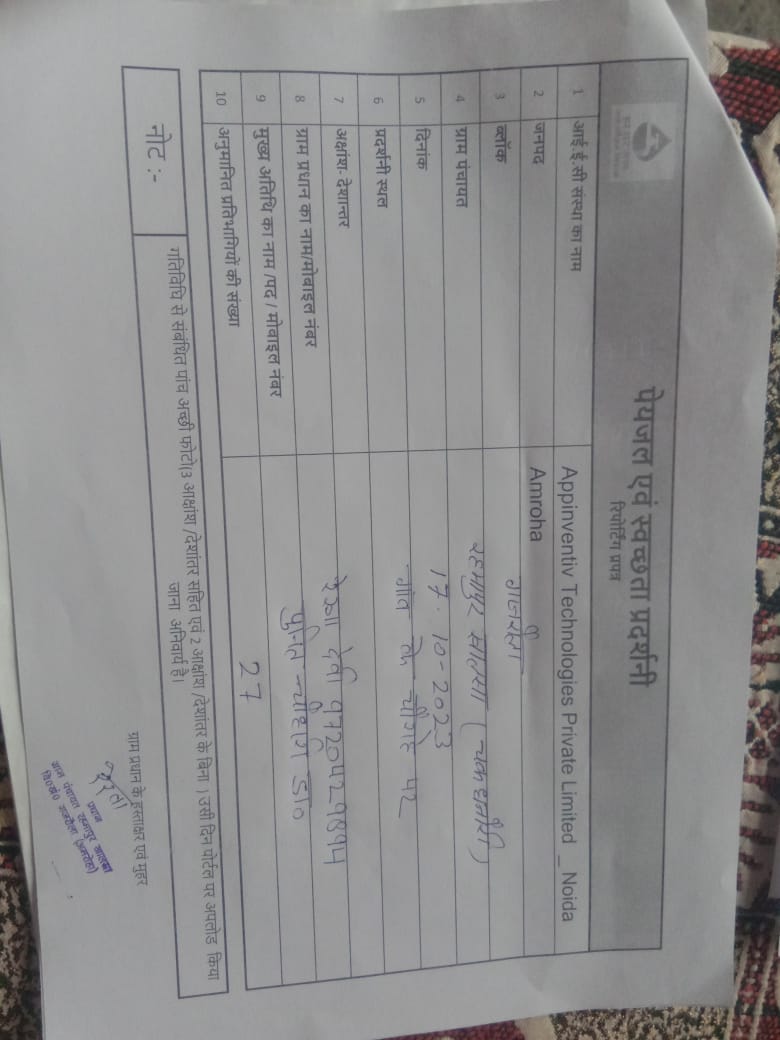 पेयजल एवं स्वच्छता प्रदर्शनी
रिपोर्टिंग प्रपत्र
1 आई.ई.सी संस्था का नाम Appinventiv Technologies Private Limited _ Noida
2 जनपद Amroha
3 ब्लॉक गजरौला
4 ग्राम पंचायत रहमापुर खालसा (चक
5 दिनांक 17-10-2023
6 प्रदर्शनी स्थल गांव के चौराहे पर
7 अक्षांश- देशान्तर
8 ग्राम प्रधान का नाम/मोबाइल नंबर देवी 9720429894
9 मुख्य अतिथि का नाम /पद / मोबाइल नंबर
10 अनुमानित प्रतिभागियों की संख्या 27
नोट :- गतिविधि से संबंधित पांच अच्छी फोटो(3 आक्षांश /देशांतर सहित एवं 2 आक्षांश /देशांतर के बिना ) उसी दिन पोर्टल पर अपलोड किया
जाना अनिवार्य है।
ग्राम प्रधान के हस्ताक्षर एवं मुहर
प्रधान
ग्राम पंचायत रहमापुर खालसा
वि०ख० गजरौला (अमरोहा)